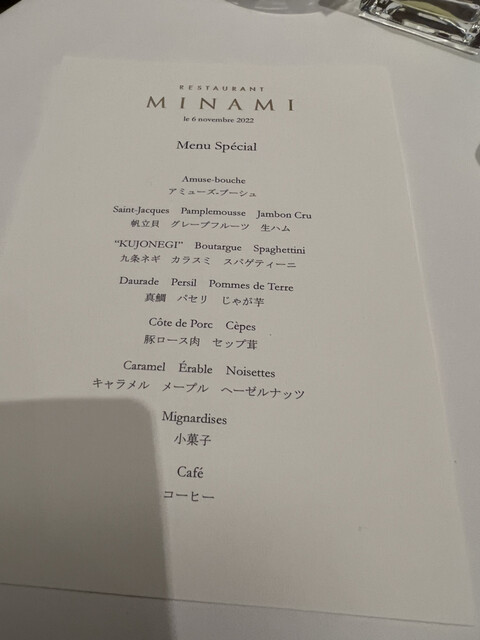 RESTAURANT
MINAMI
le 6 novembre 2022
Menu Spécial
Amuse-bouche
アミューズ-ブーシュ
Saint-Jacques Pamplemousse Jambon Cru
帆立貝 グレープフルーツ 生ハム
“KUJONEGI” Boutargue Spaghettini
九条ネギ カラスミ スパゲティーニ
Daurade Persil Pommes de Terre
真鯛 パセリ じゃが芋
Côte de Porc Cèpes
豚ロース肉 セップ茸
Caramel Érable Noisettes
キャラメル メープル ヘーゼルナッツ
Mignardises
小菓子
Café
コーヒー